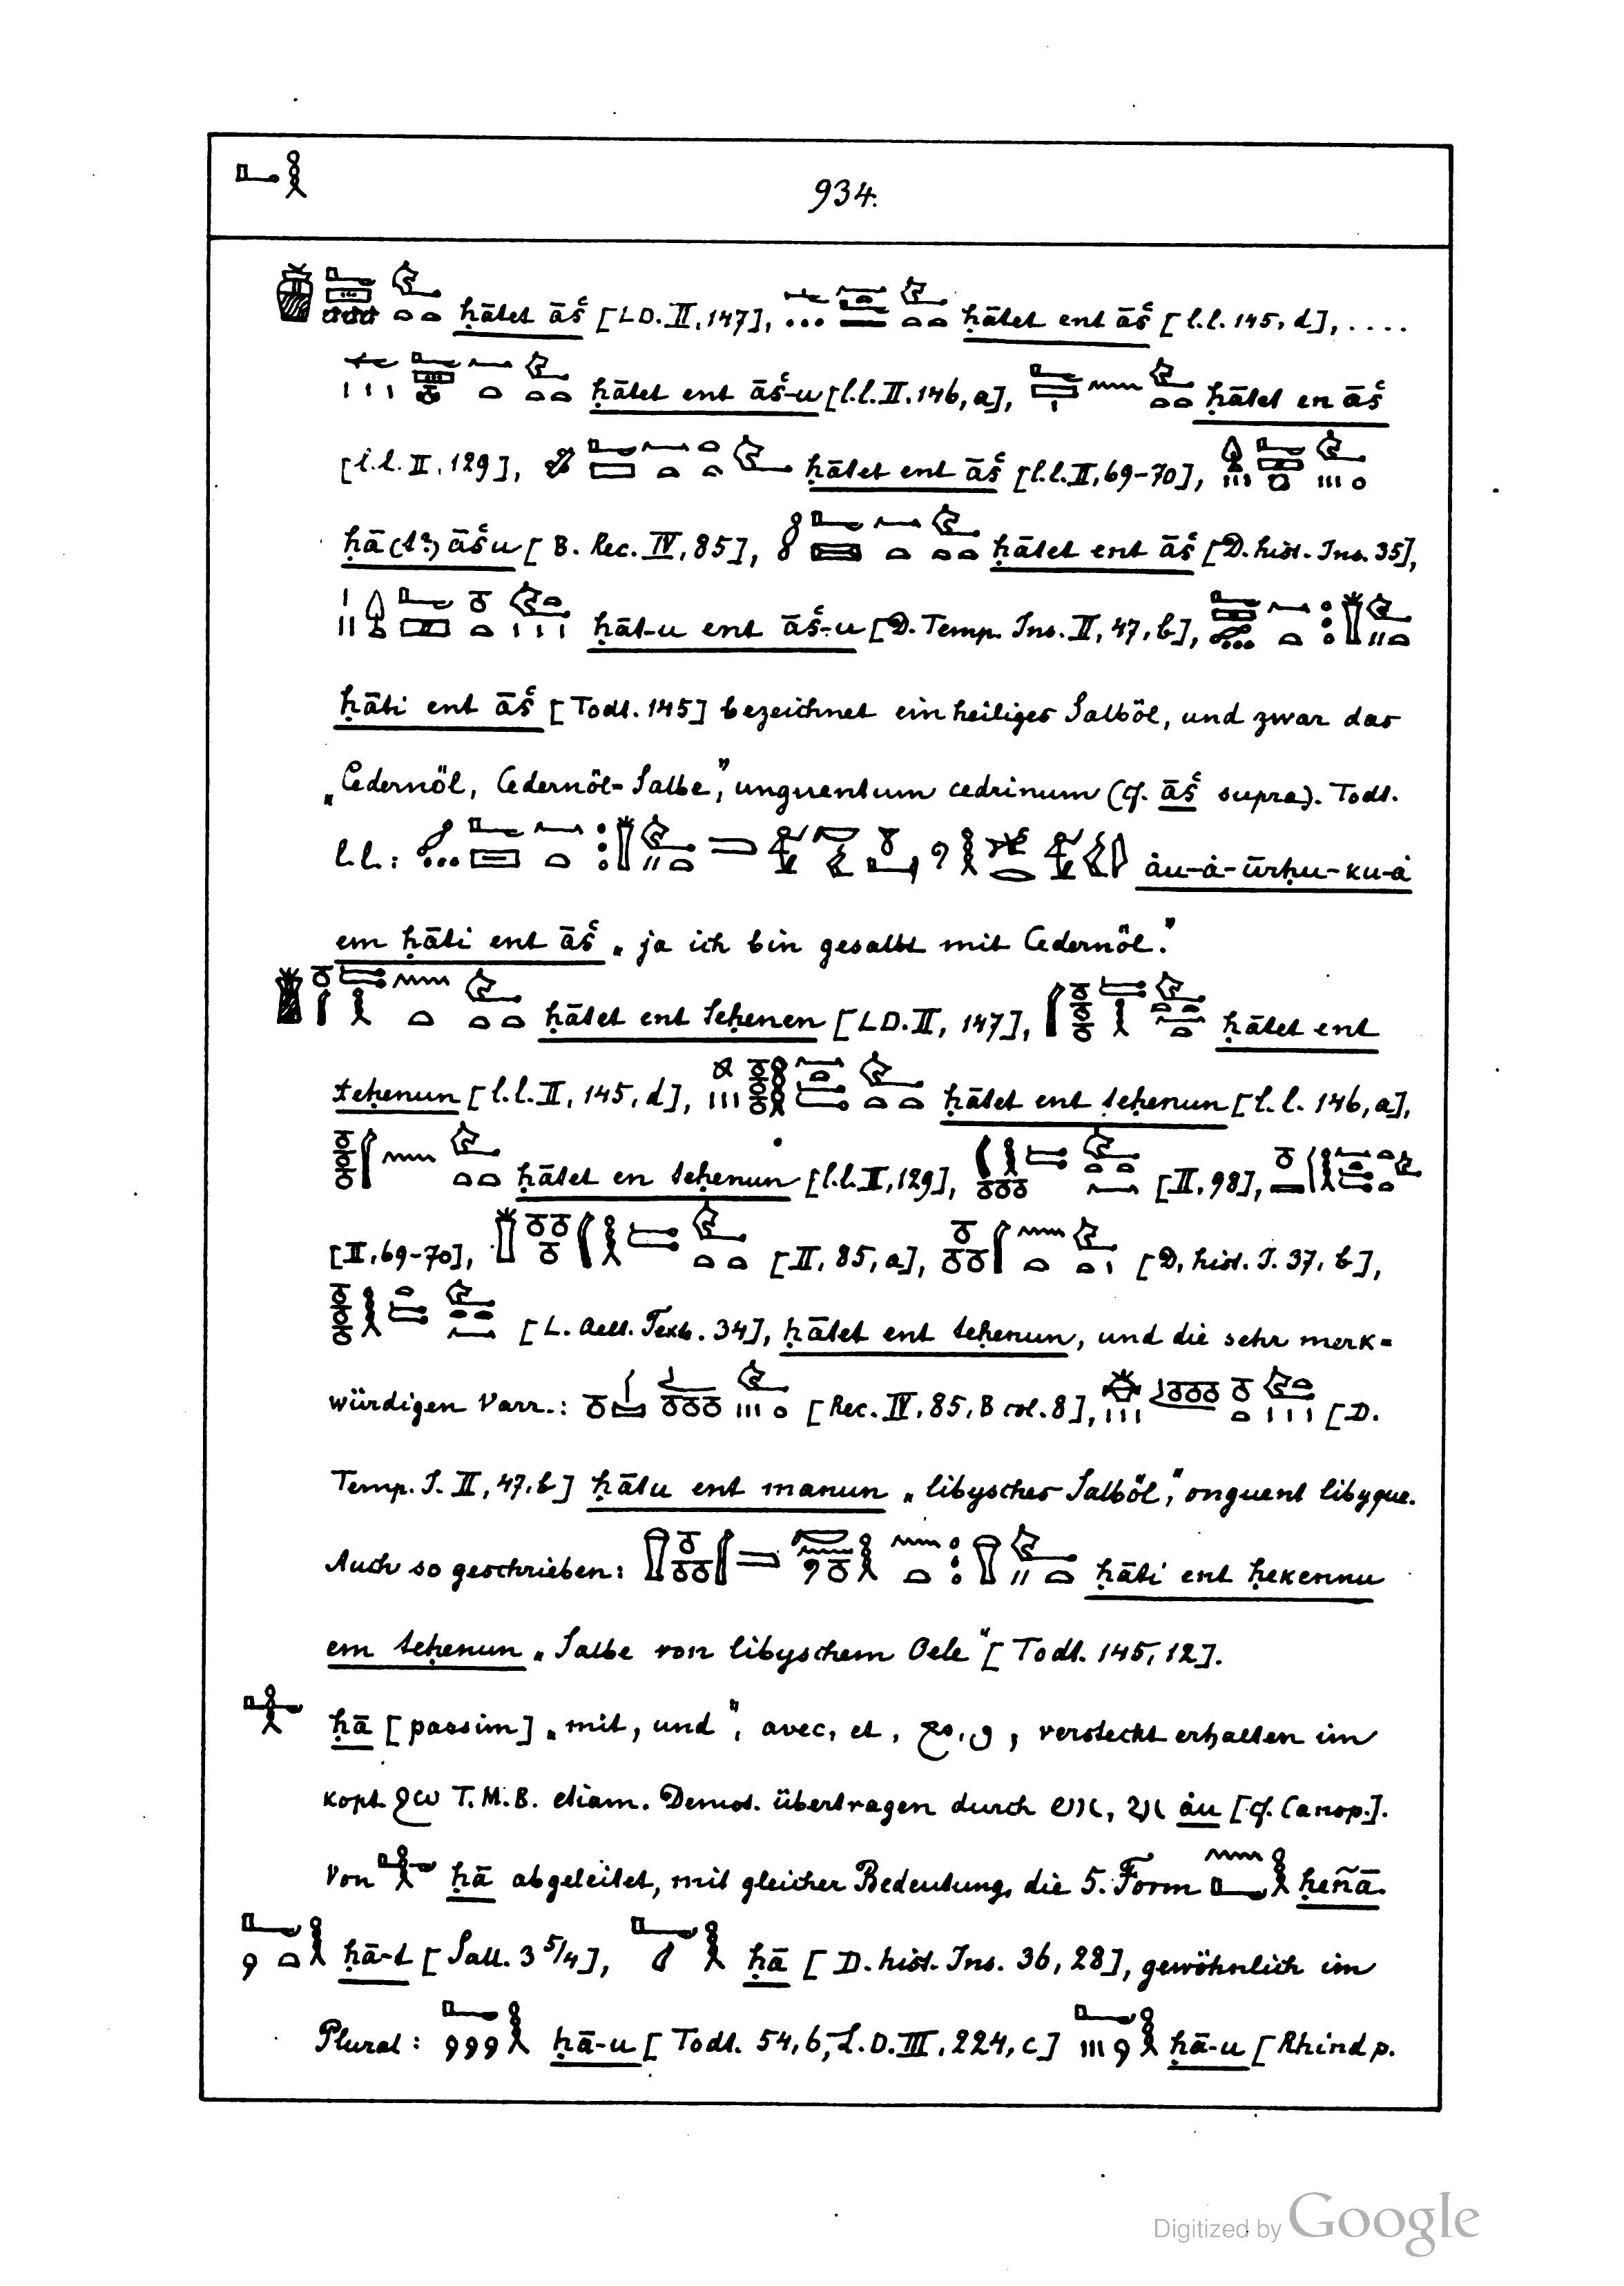 934.
ḥātet āš [LD. II, 147], ḥātet ent āš [l.l. 145, d], ....
ḥātet ent āš-u [l.l. II. 146, a], ḥātet en āš
[l.l. II, 129], ḥātet ent āš [l.l. II, 69-70],
ḥā(t?) āšu [B. Rec. IV, 85], ḥātet ent āš [D. hist. Ins. 35],
ḥāt-u ent āš-u [D. Temp. Ins. II, 47, b],
ḥāti ent āš [Todt. 145] bezeichnet ein heiliges Salböl, und zwar das
„Cedernöl, Cedernöl-Salbe," unguentum cedrinum (cf. āš supra). Todt.
l.l.:ȧu-ȧ-ūrḥu-ku-ȧ
em ḥāti ent āš „ja ich bin gesalbt mit Cedernöl."
ḥātet ent teḥenen [LD. II, 147], ḥātet ent
teḥenun [l.l. II, 145, d], ḥātet ent teḥenun [l.l. 146, a],
ḥātet en teḥenun [l.l. II, 129], [II, 98],
[II, 69-70], [II, 85, a], [D, hist. I. 37, b],
[L. Aelt. Texte. 34], ḥātet ent teḥenun, und die sehr merk=
würdigen Varr.: [Rec. IV, 85, B col. 8], [D.
Temp. I. II, 47, b] ḥātu ent manun „libysches Salböl," onguent libyque.
Auch so geschrieben: ḥāti ent ḥekennu
em teḥenun „Salbe von libyschem Oele" [Todt. 145, 12].
ḥā [passim] „mit, und", avec, et, versteckt erhalten im
kopt ϩⲱ T. M. B. etiam. Demot. übertragen durch ȧu [cf. Canop.].
Von ḥā abgeleitet, mit gleicher Bedeutung, die 5. Form ḥeñā.
ḥā-t [Sall. 3 5/4], ḥā [D. hist. Ins. 36, 28], gewöhnlich im
Plural: ḥā-u [Todt. 54, 6, L.D. III, 224, c] ḥā-u [Rhind p.
Digitized by Google